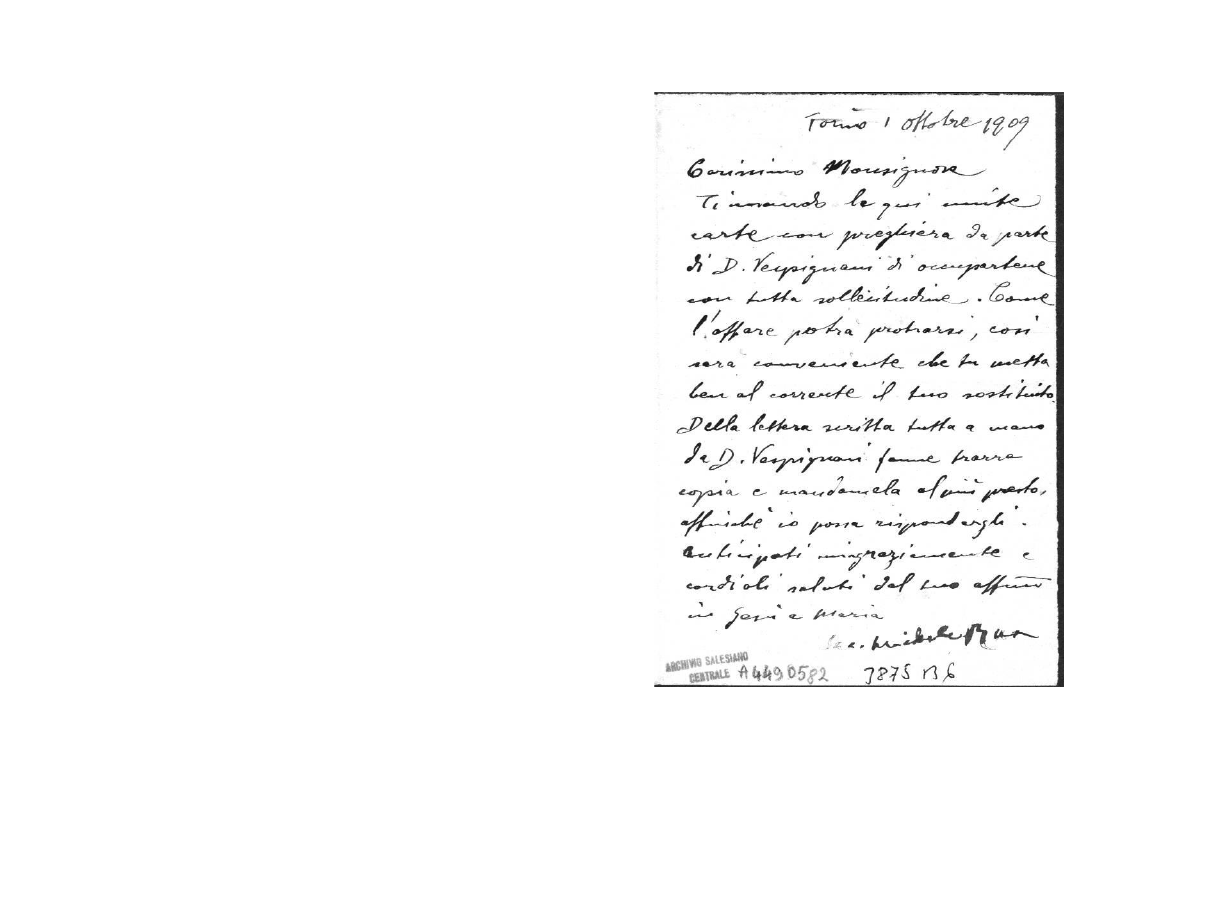 Torino 1 Ottobre 1909
Carissimo Monsignore
Ti mando le qui unite
carte con preghiera da parte
di D. Vespignani di occupartene
con tutta sollecitudine. Come
l'affare potrà protrarsi, così
sarà conveniente che tu metta
ben al corrente il tuo sostituto.
Della lettera scritta tutta a mano
da D. Vespignani fanne trarre
copia e mandamela al più presto,
affinché io possa rispondergli.
Anticipati ringraziamente e
cordiali saluti dal tuo affmo
in Gesù e Maria
Sac. Michele Rua
ARCHIVIO SALESIANO
CENTRALE A4490582 3875 B6